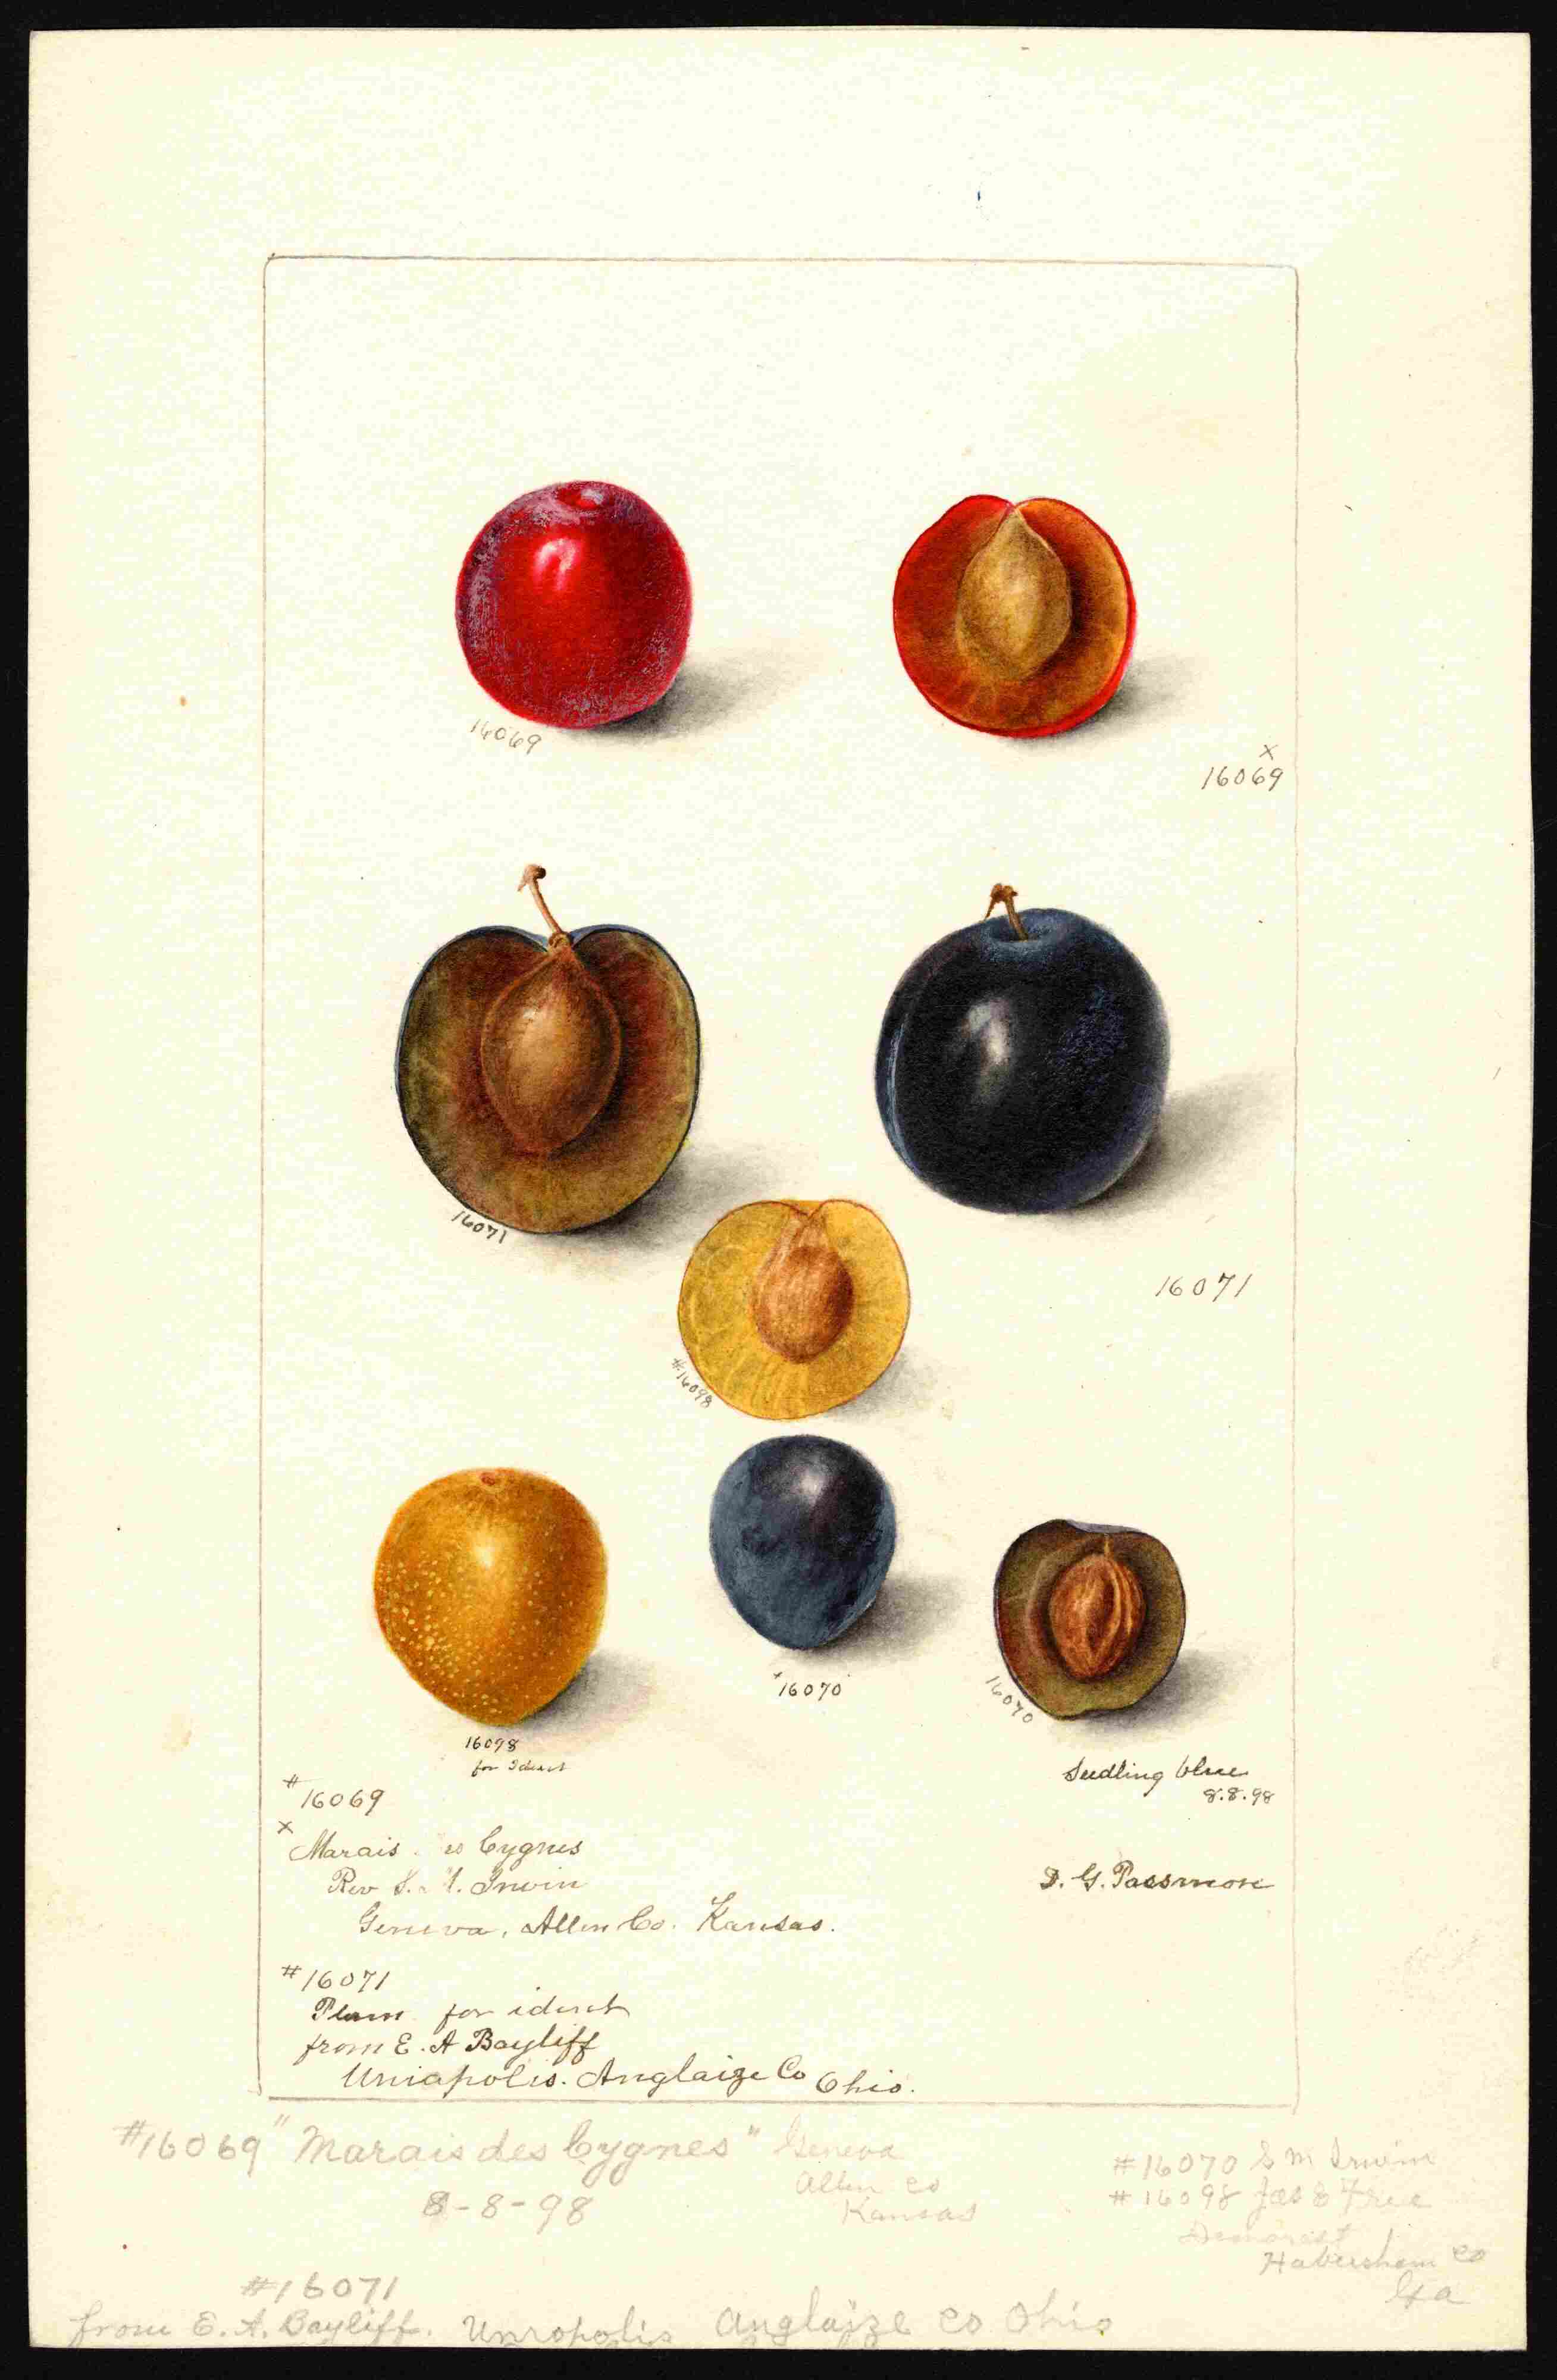 16069
x
16069
16071
16071
#16098
x16070
16070
16098
for Ident
Seedling blue
8.8.98
#16069
x
Marais es Cygnes
Rev S. Irwin
Geneva, Allen Co. Kansas.
D. G. Passmore
#16071
Plum for ident
from E. A Bayliff
Uniapolis. Anglaize Co Ohio.
#16069 "Marais des Cygnes" Geneva
Allen Co
Kansas
8-8-98
#16070 S M Irwin
#16098 Jas & Free
Demorest
Habersham Co
Ga
#16071
from E. A. Bayliff. Unropolis Anglaize Co Ohio